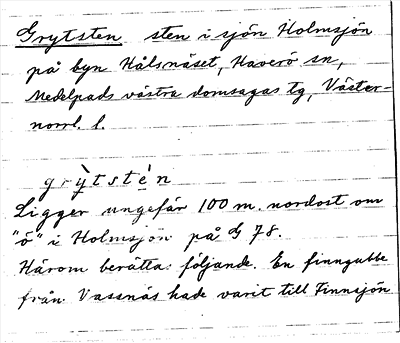 Grytsten sten i sjön Holmsjön
på byn Hålsnäset, Haverö sn,
Medelpads västra domsagas tg, Väster-
norrl. l.
grỳtstén
Ligger ungefär 100 m. nordost om
"ö" i Holmsjön på G 78.
Härom berätta: följande. En finngubbe
från Vassnäs hade varit till Finnsjön